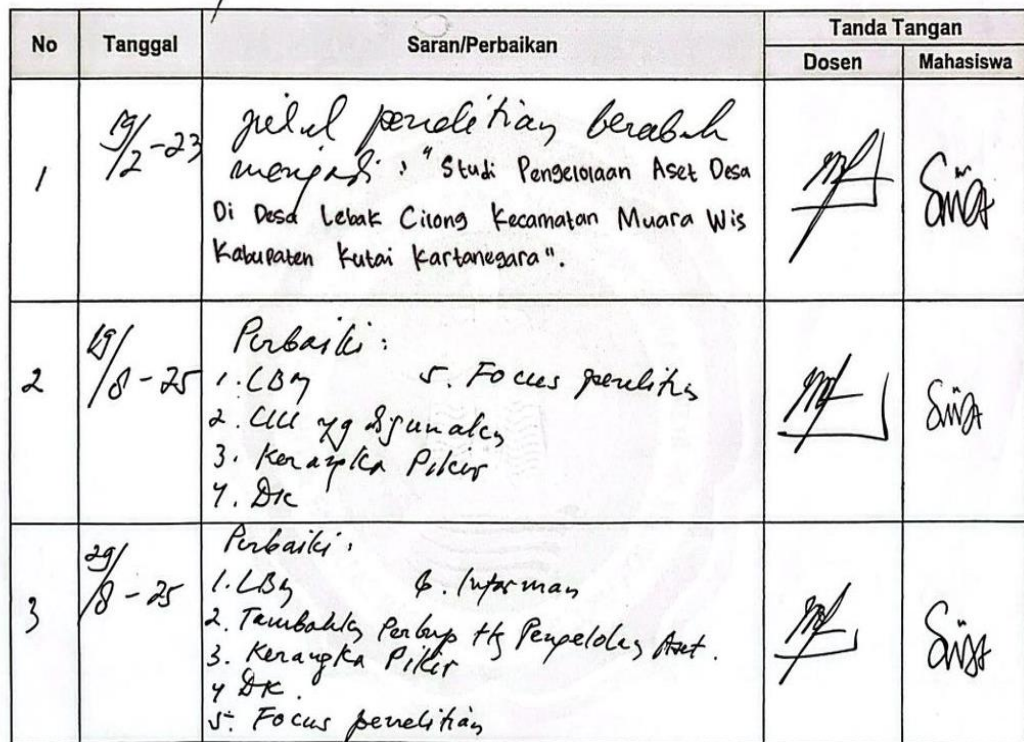 No Tanggal Saran/Perbaikan Tanda Tangan
Dosen Mahasiswa
1 19/2-23 judul penelitian berubah
menjadi : "Studi Pengelolaan Aset Desa
Di Desa Lebak Cilong Kecamatan Muara Wis
Kabupaten Kutai Kartanegara".
2 19/8-25 Perbaiki :
1. LBM 5. Focus penelitian
2. UU yg digunakan
3. Kerangka Pikir
4. DK
3 29/8-25 Perbaiki :
1. LBM 6. Informan
2. Tambahkan Perbup ttg Pengelolaan Aset.
3. Kerangka Pikir
4 DK.
5. Focus penelitian